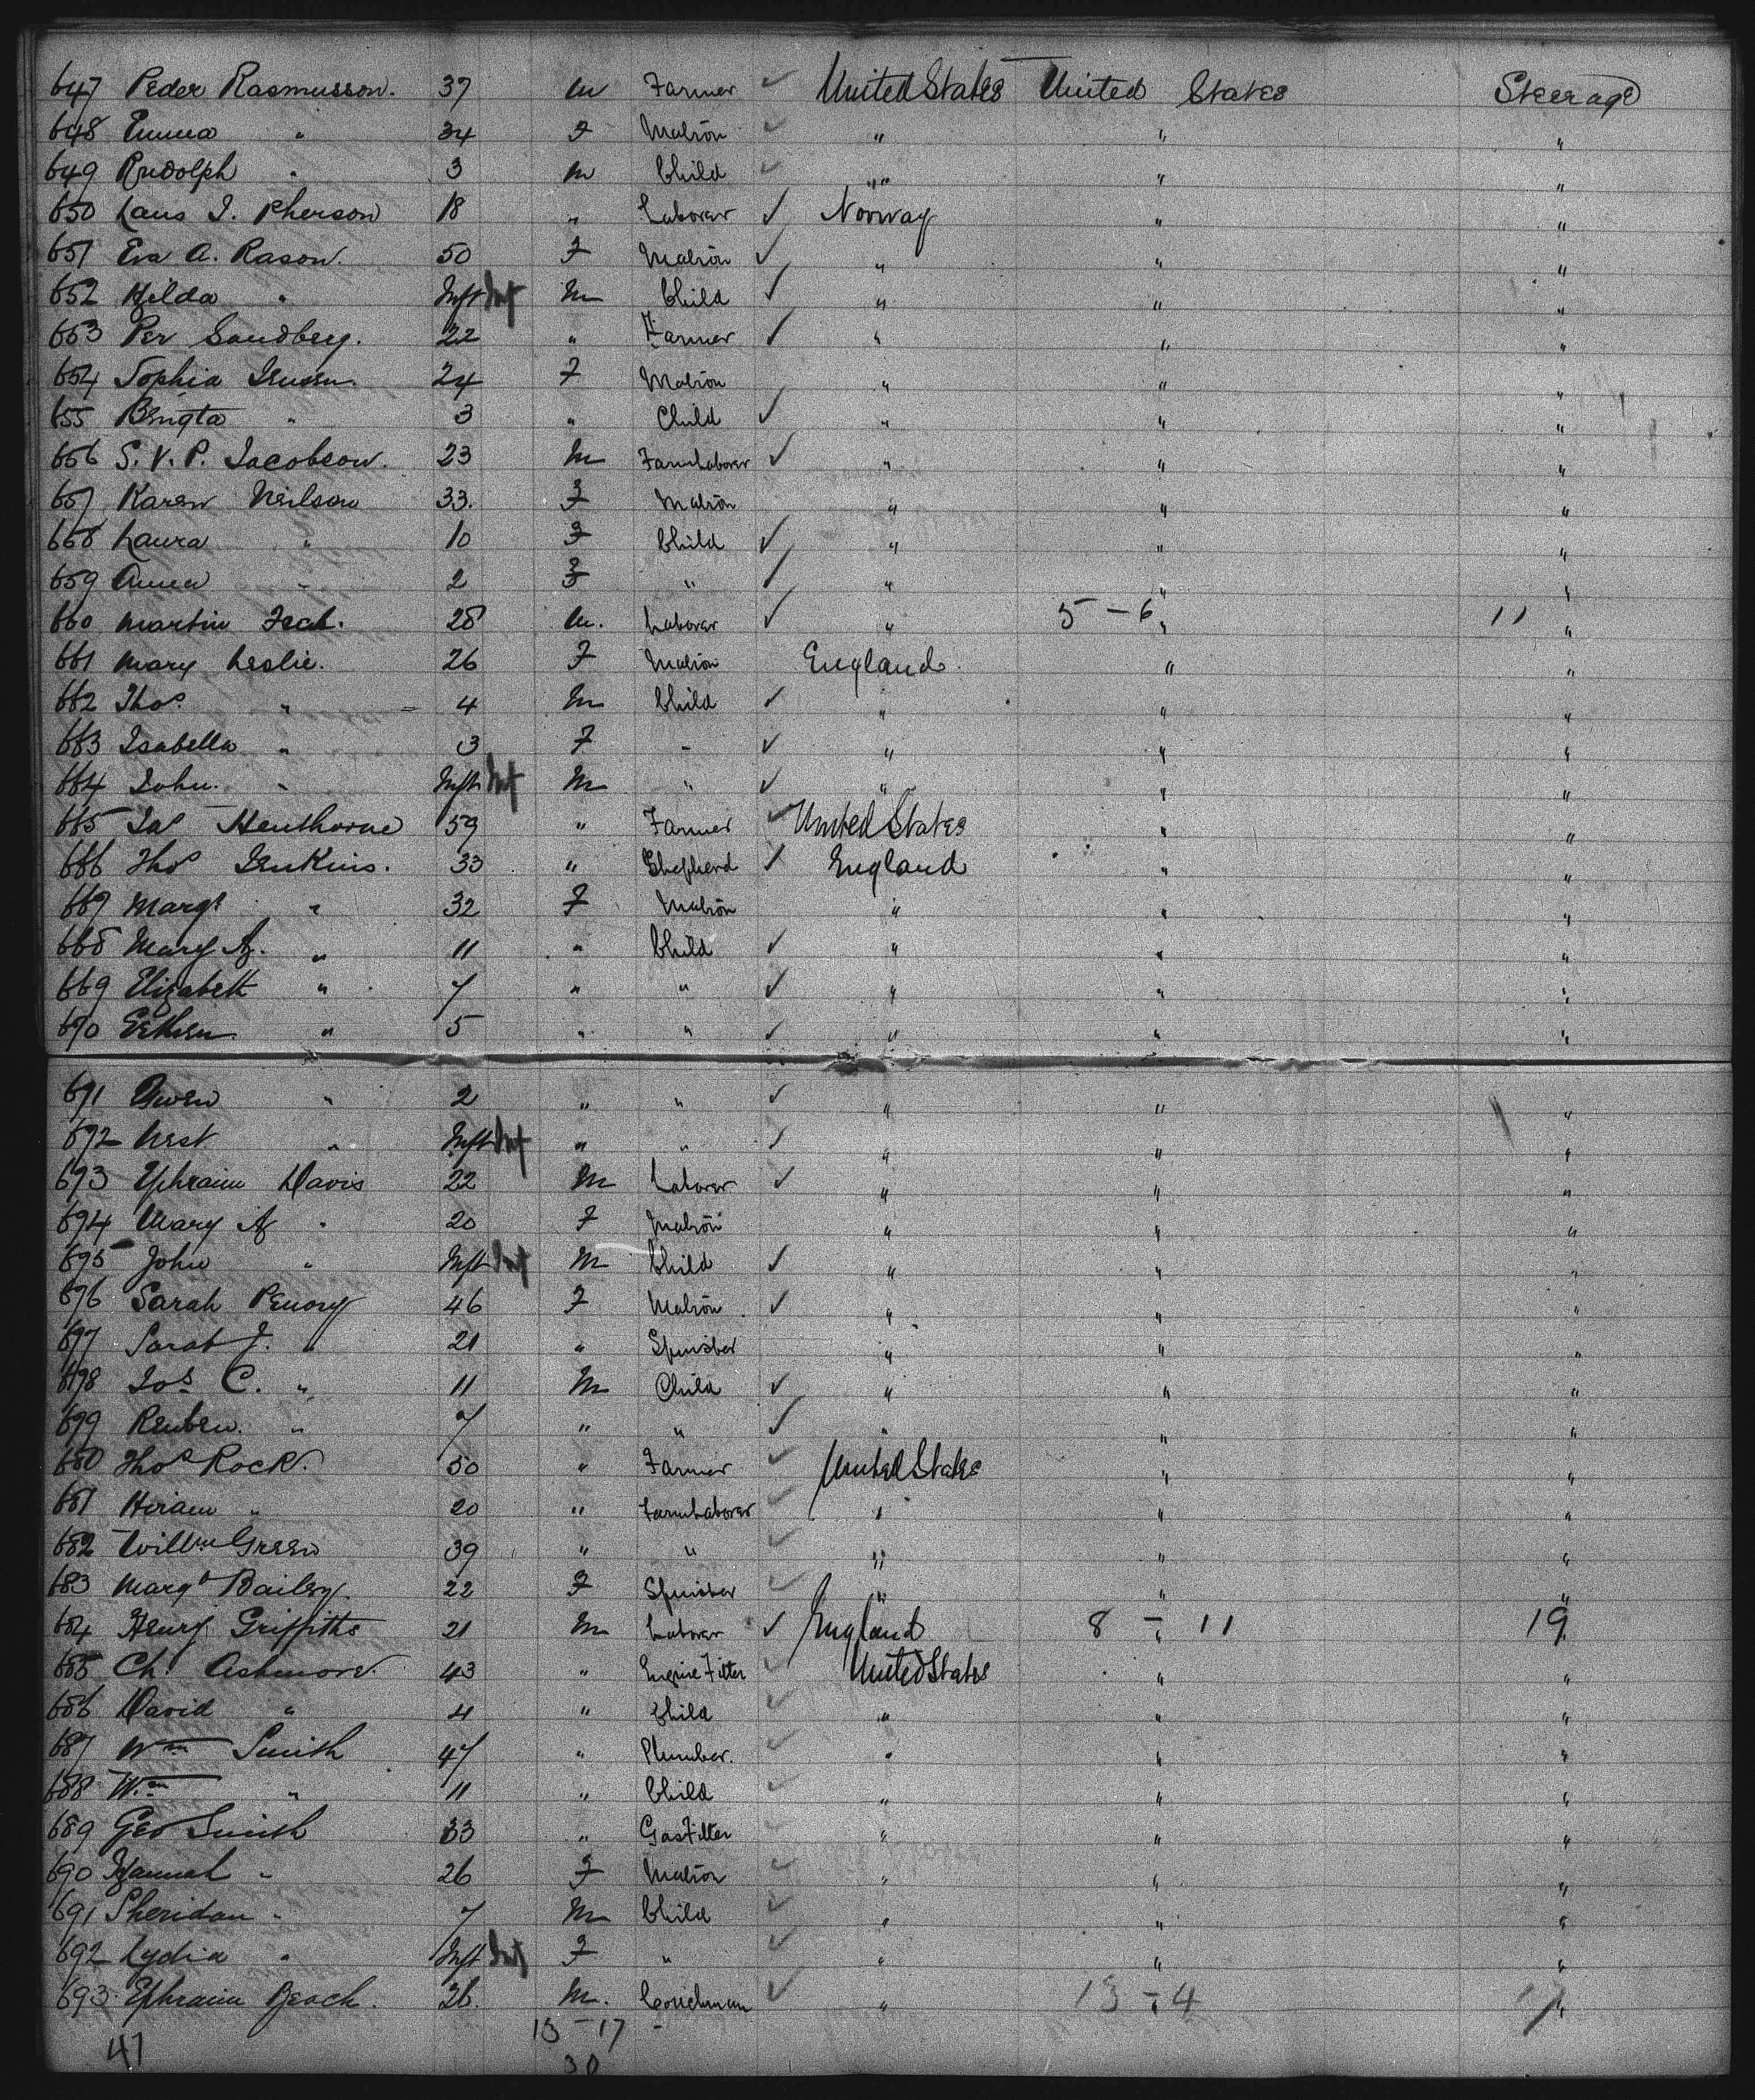 647 Peder Rasmusson. 37 m Farmer ✓ United States United States Steerage
648 Emma " 34 F Matron ✓ " " "
649 Rudolph " 3 m Child ✓ " " "
650 Hans I. Pherson 18 " Laborer ✓ Norway " "
651 Eva A. Rason. 50 F Matron ✓ " " "
652 Hilda " Inft Inf M Child ✓ " " "
653 Per Sandberg. 22 " Farmer ✓ " " "
654 Sophia Jensen. 24 F Matron " " "
655 Bengta " 3 " Child ✓ " " "
656 S. V. P. Jacobson. 23 M Farm Laborer ✓ " " "
657 Karen Neilson 33. F Matron " " "
658 Laura " 10 F Child ✓ " " "
659 Anna " 2 F " ✓ " " "
660 Martin 28 m. Laborer ✓ " 5 - 6 " 11 "
661 Mary Leslie. 26 F Matron England. " "
662 Thos. " 4 M Child ✓ " " "
663 Isabella " 3 F " ✓ " " "
664 John. " Inft Inf M " ✓ " " "
665 Jas Henthorne 59 " Farmer ✓ United States " "
666 Thos Jenkins. 33 " Shepherd ✓ England " "
667 Margt " 32 F Matron " " "
668 Mary A. " 11 " Child ✓ " " "
669 Elizabeth " 7 " " ✓ " " "
670 " 5 " " ✓ " " "
671 Owen " 2 " " ✓ " " "
672 Nest " Inft Inf " " ✓ " " "
673 Ephraim Davis 22 M Laborer ✓ " " "
674 Mary A " 20 F Matron " " "
675 John " Inft Inf M Child ✓ " " "
676 Sarah Penory 46 F Matron ✓ " " "
677 Sarah J. " 21 " Spinster " " "
678 Jos C. " 11 M Child ✓ " " "
679 Reuben. " 7 " " ✓ " " "
680 Thos Rock. 50 " Farmer ✓ United States " "
681 Hiram " 20 " Farm Laborer ✓ " " "
682 Willm Green 39 " " ✓ " " "
683 Margt Bailey. 22 F Spinster ✓ " " "
684 Henry Griffiths 21 M Laborer ✓ England 8 - 11 " 19 "
685 Chs. Ashmore. 43 " Engine Fitter ✓ United States " "
686 David " 4 " Child ✓ " " "
687 Wm Smith 47 " Plumber. ✓ " " "
688 Wm " 11 " Child ✓ " " "
689 Geo Smith 33 " Gas Fitter ✓ " " "
690 Hannah " 26 F Matron ✓ " " "
691 Sheridan " 7 M Child ✓ " " "
692 Lydia " Inft Inf F " ✓ " " "
693 Ephraim Beach. 26. M. Coachman ✓ " 13 - 4 " 17 "
13 - 17 -
47 30